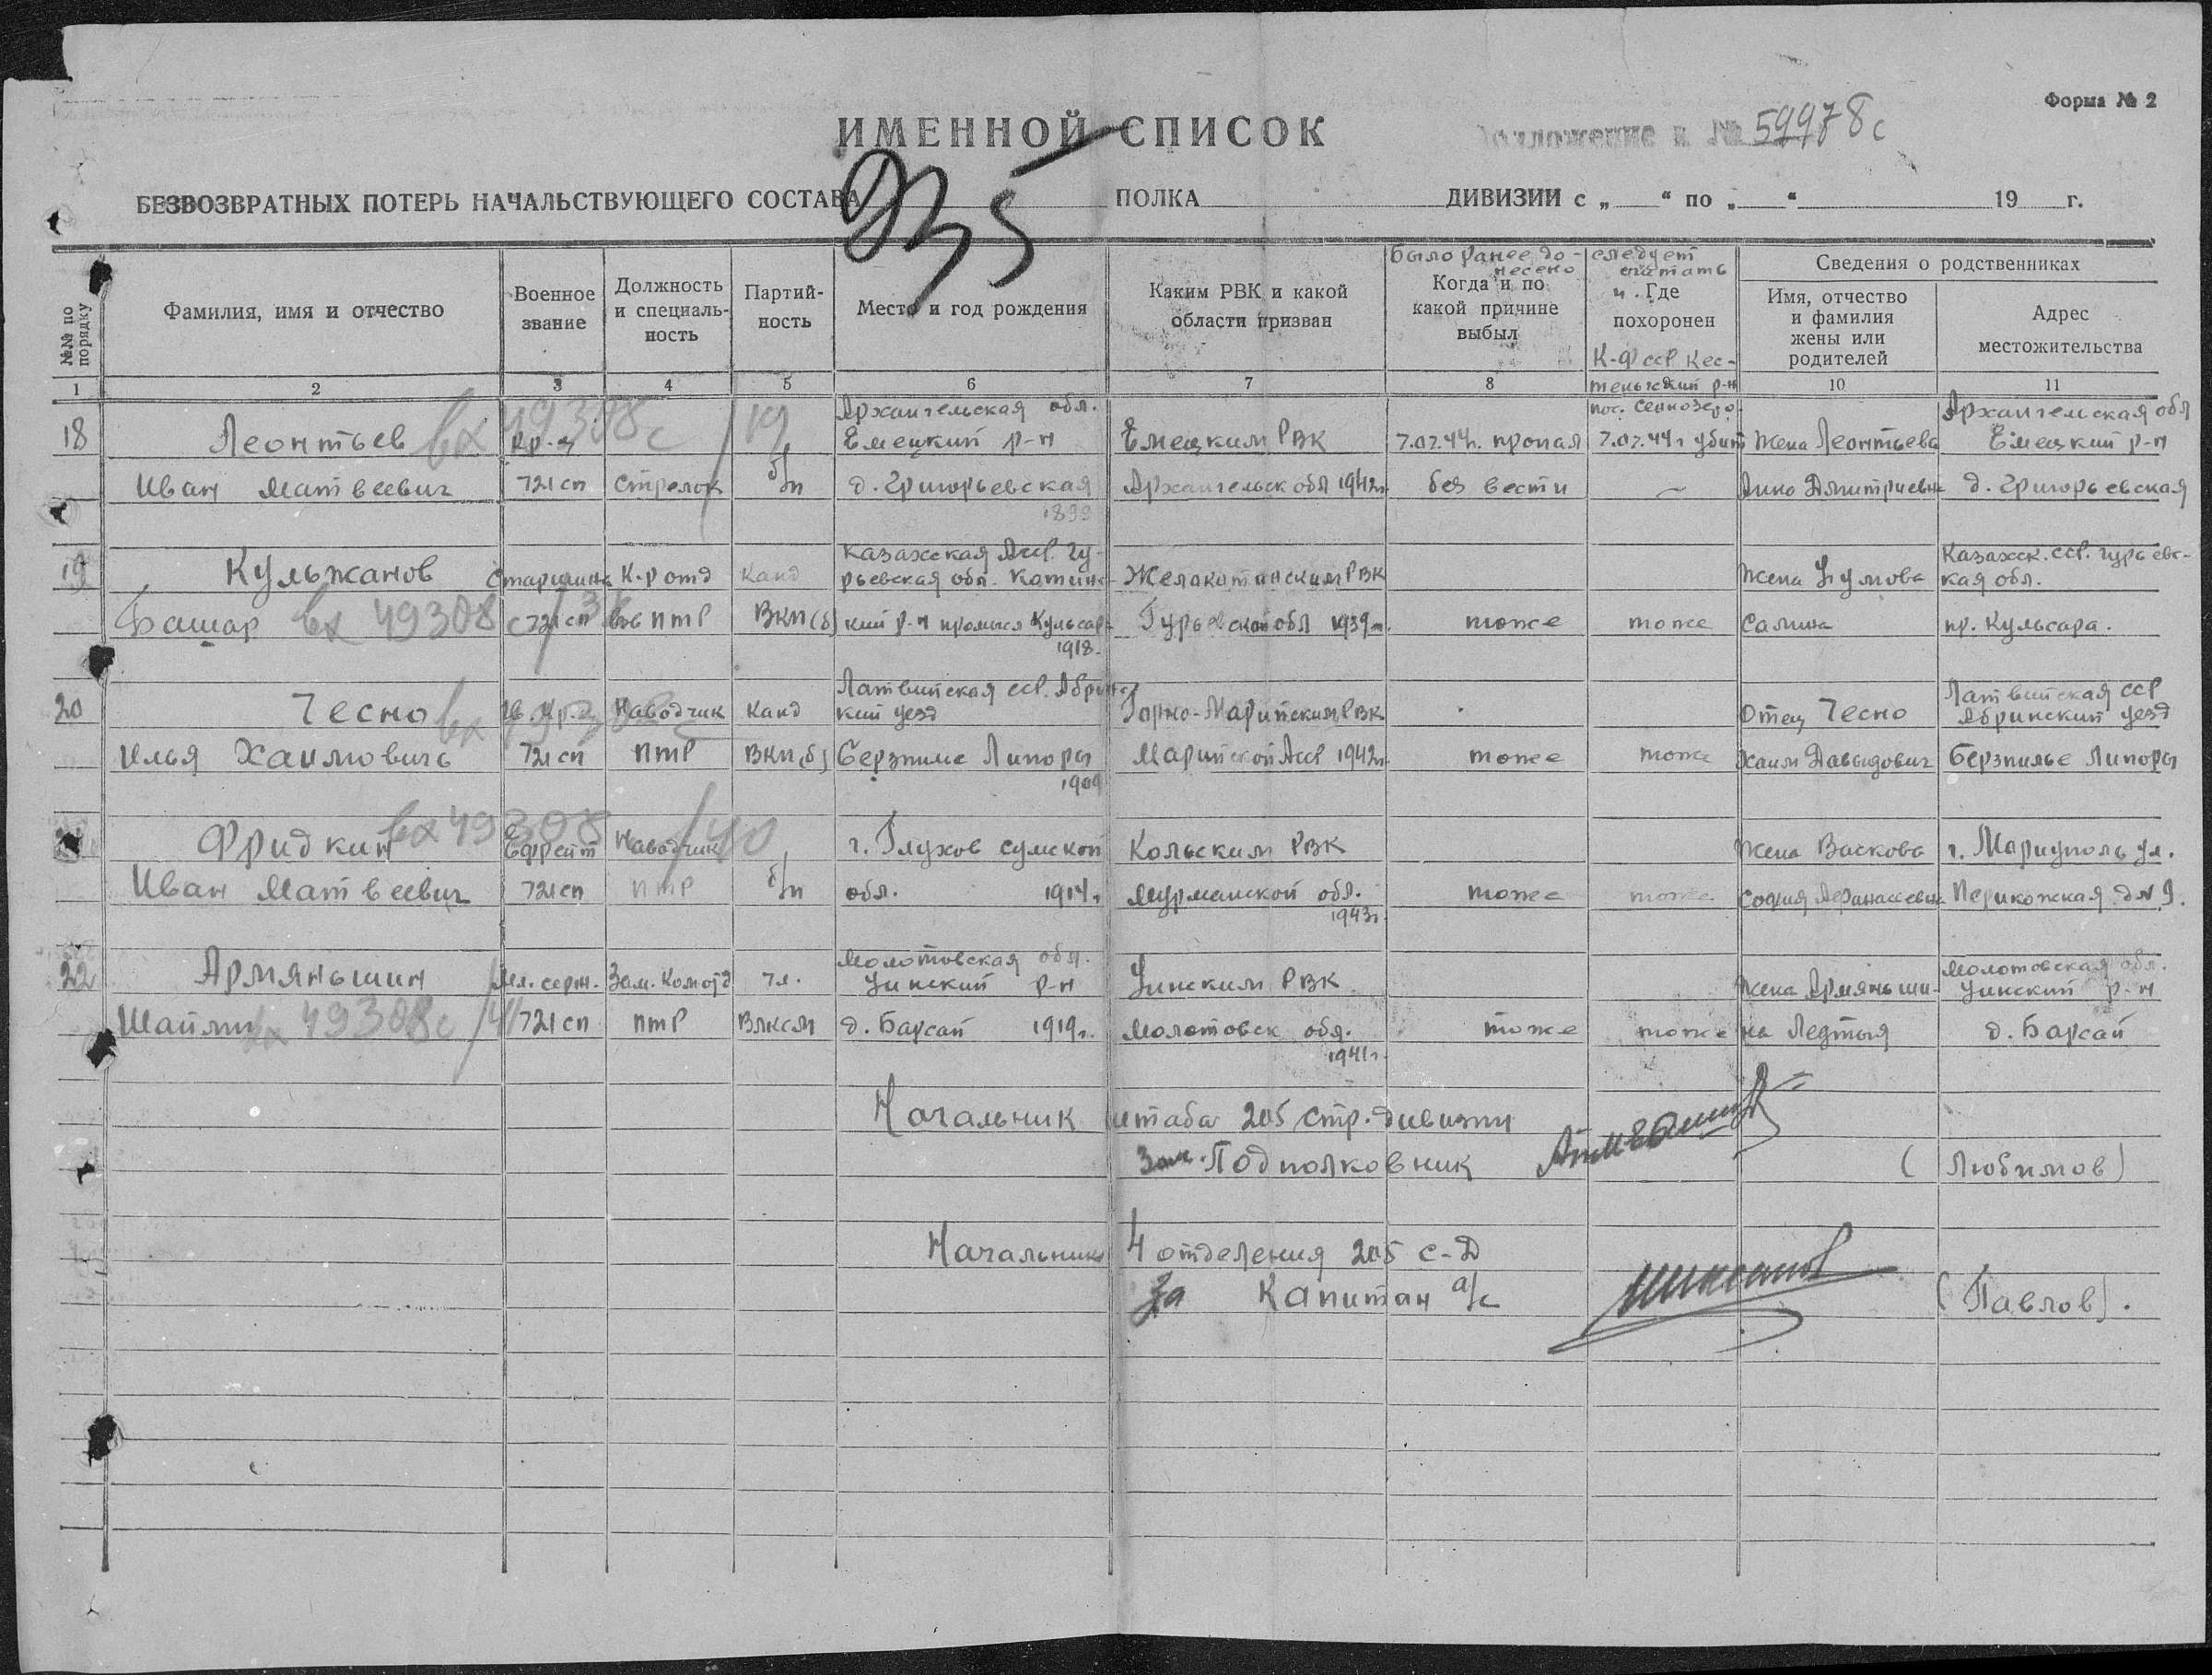 Форма № 2
ИМЕННОЙ СПИСОК
Приложение к № 59978с
935
БЕЗВОЗВРАТНЫХ ПОТЕРЬ НАЧАЛЬСТВУЮЩЕГО СОСТАВА ПОЛКА ДИВИЗИИ с „ “ по „ “ 19 г.
№№ по порядку
Фамилия, имя и отчество
Военное звание
Должность и специаль-ность
Партий-ность
Место и год рождения
Каким РВК и какой области призван
Было ранее до-несено
Когда и по какой причине выбыл
следует считать
и. Где похоронен
К-Ф ССР Кес-
теньгский р-н
Сведения о родственниках
Имя, отчество и фамилия жены или родителей
Адрес местожительства
1 2 3 4 5 6 7 8 10 11
Архангельская обл. Архангельская обл
18 Леонтьев вх 49308с/19 кр-ц Емецкий р-н Емецким РВК 7.07.44г. пропал 7.07.44г убит Жена Леонтьева Емецкий р-н
Иван Матвеевич 721 сп Стрелок б/п д. Григорьевская Архангельск обл 1942г. без вести Анна Дмитриевна д. Григорьевская
1899
Казахская АССР. Гу- Казахск. ССР. Гурьевс-
19 Кульжанов Старшина К-р отд Канд рьевская обл. РВК Жена кая обл.
Башар вх 49308с/3 721 сп ПТР ВКП(б) кий р-н промысл Кульсары Гурьевской обл 1939г. тоже тоже пр. Кульсара.
1918.
Латвийская ССР. Абринс- Латвийская ССР
20 Чесно Наводчик Канд кий уезд Горно-Марийским РВК Отец Чесно Абринский уезд
Илья Хаимович 721 сп ПТР ВКП(б) Липоры Марийской АССР 1942г. тоже тоже Хаим Давыдович Липоры
1909
Фридкин вх 49308/40 Ефрейт Наводчик г. Глухов Сумской Кольским РВК Жена Васкова г. Мариуполь ул.
Иван Матвеевич 721 сп ПТР б/п обл. 1914г. Мурманской обл. тоже тоже София Афанасьевна д № 9.
1943г.
Молотовская обл. Молотовская обл.
22 Армяньшин Мл. серж. Зам. Ком отд чл. Уинский р-н Уинским РВК Жена Армяньши- Уинский р-н
вх 49308с/41 721 сп ПТР ВЛКСМ д. Барсаи 1919г. Молотовск обл. тоже тоже на д. Барсаи
1941г.
Начальник штаба 205 стр. дивизии
Зам. Подполковник (Любимов)
Начальник 4 отделения 205 С-Д
За Капитан а/с (Павлов).